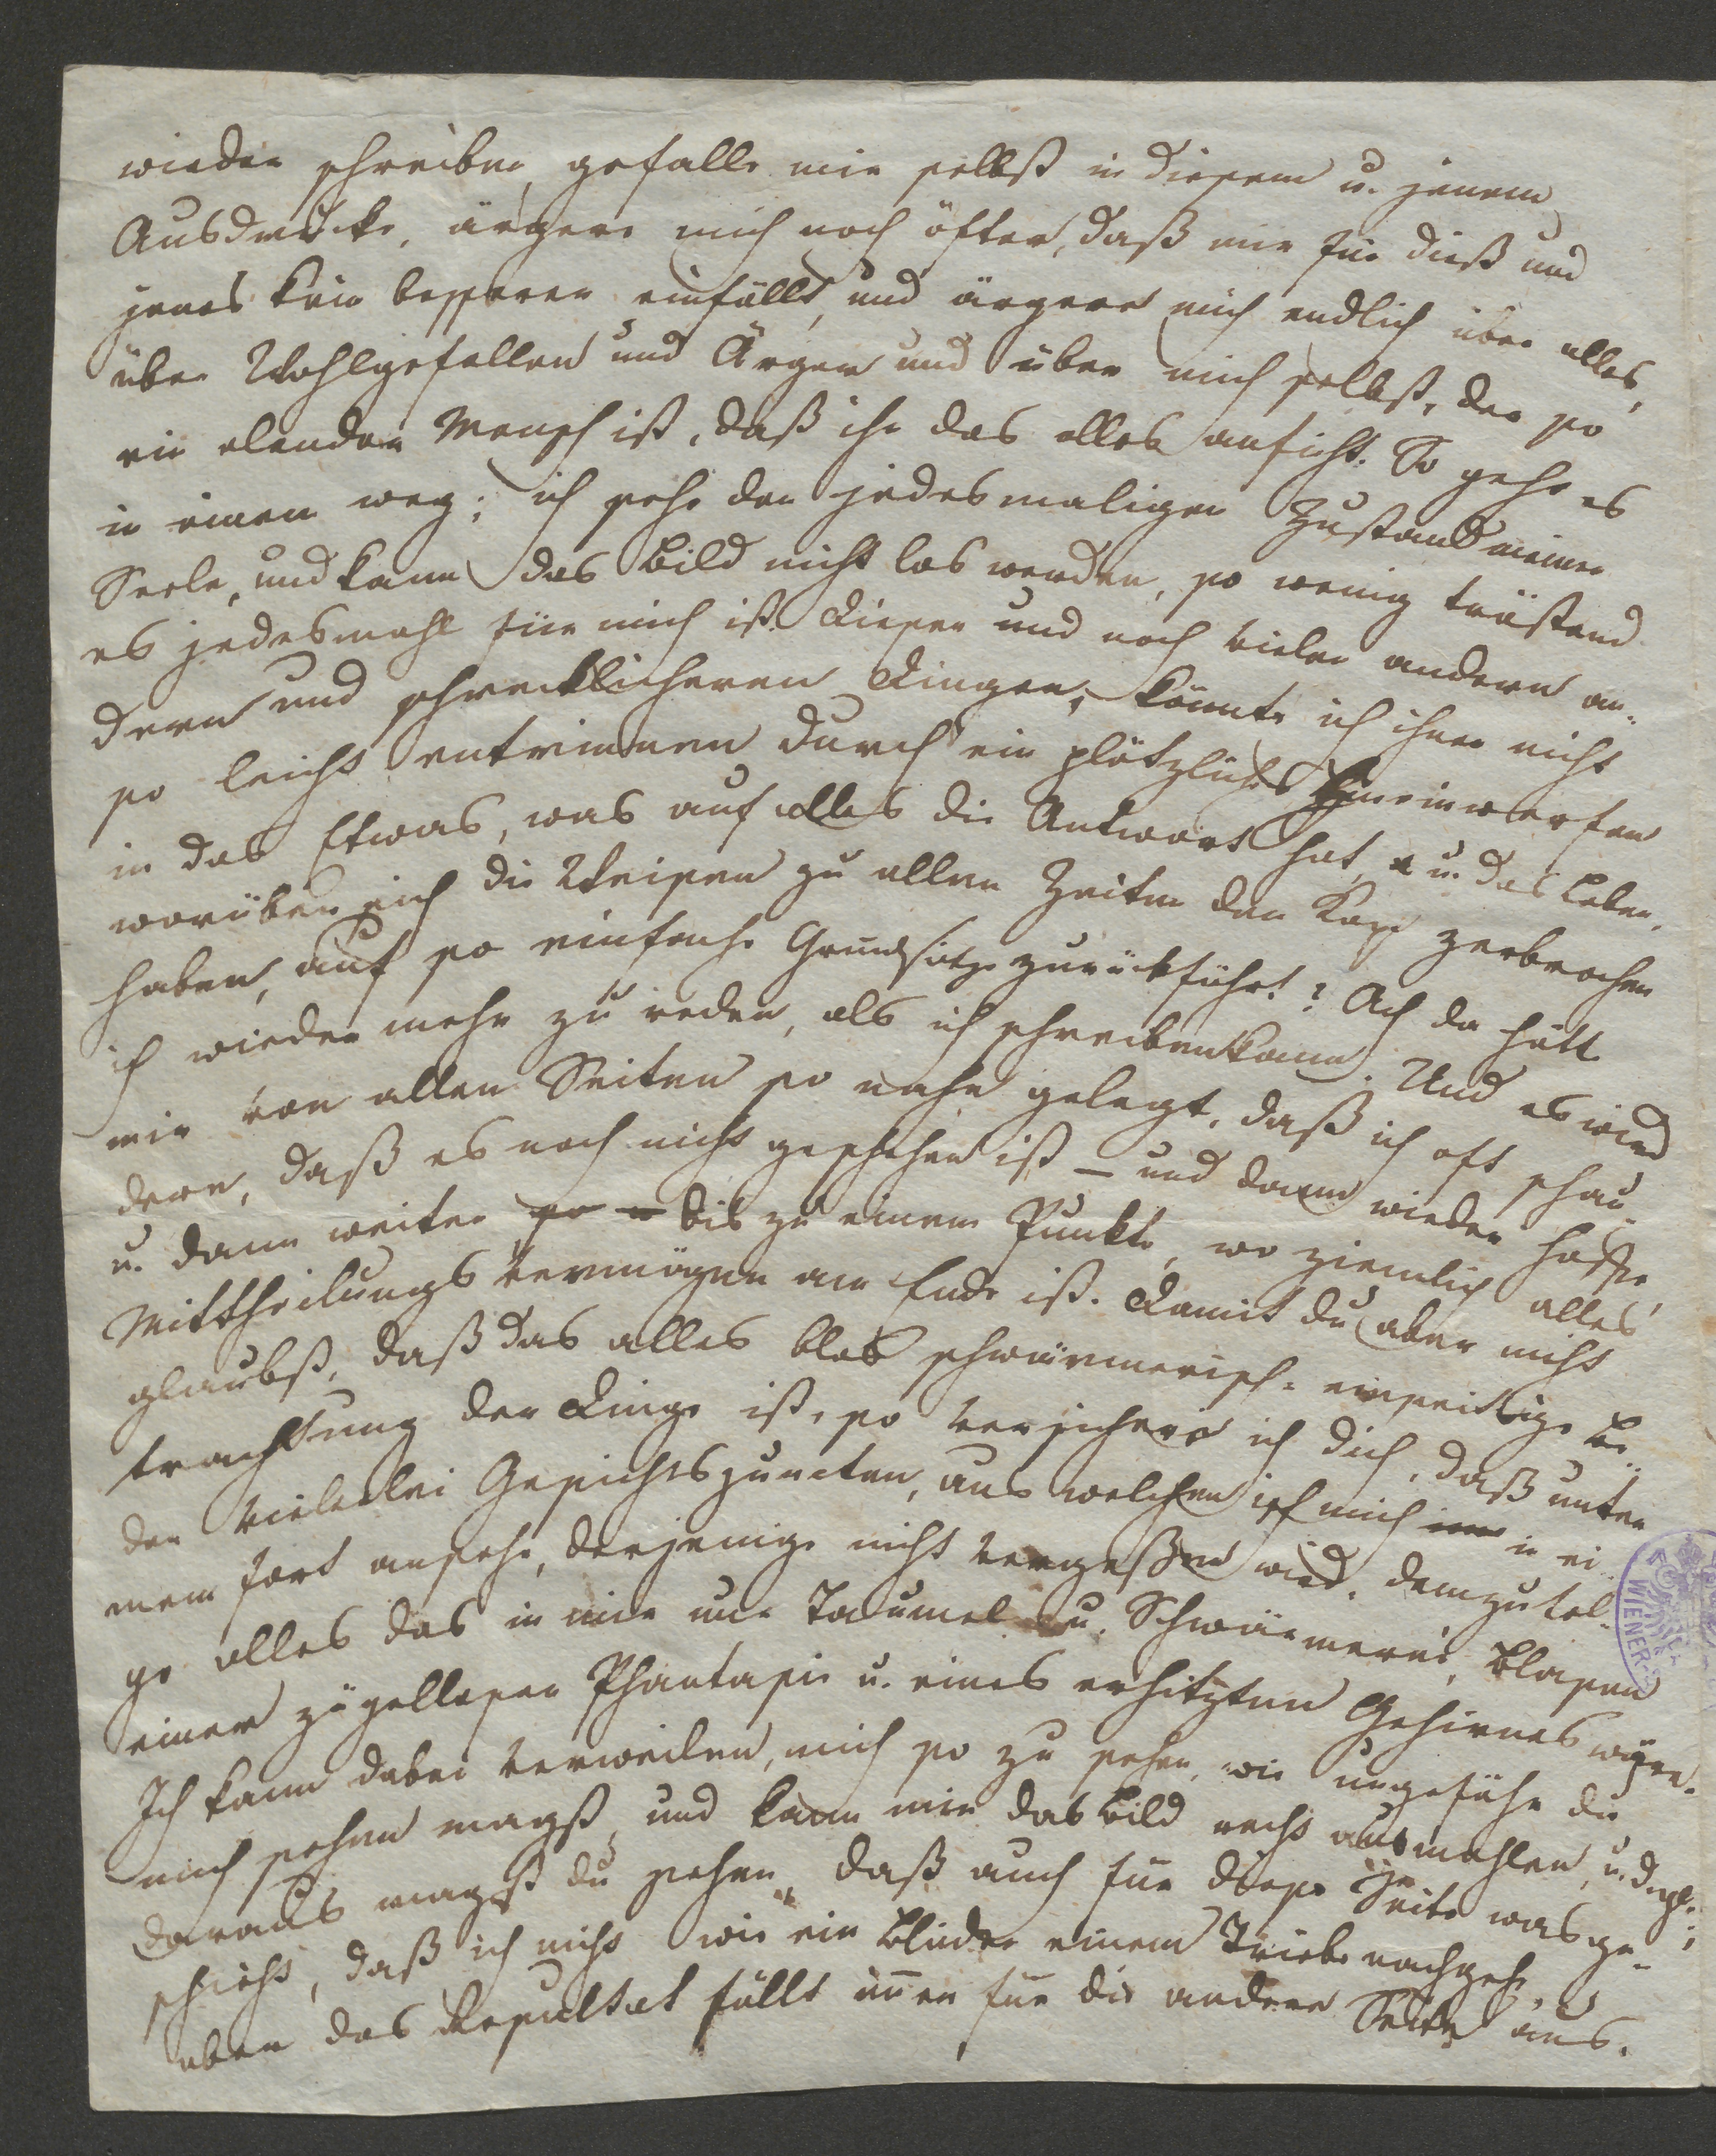 wieder schreibe, gefalle mir selbst in diesem u. jenem
Ausdrucke, ärgere mich noch öfter, daß mir für dieß und
jenes kein besserer einfällt, und ärgere mich endlich über alles,
über Wohlgefallen und Ärger und über mich selbst, der so
ein elender Mensch ist, daß ihn das alles anficht. So geht es
in einem weg; ich sehe den jedesmaligen Zustand meiner
Seele, und kann das Bild nicht los werden, so wenig tröstend
es jedesmahl für mich ist. Dieser und noch vieler andern an-
dern und schrecklicheren Dingen, könnte ich ihnen nicht
so leicht entrinnen durch ein plötzliches Hineinwerfen
in das Etwas, was auf alles die Antwort hat, u. das Leben,
worüber sich die Weisen zu allen Zeiten den Kopf zerbrochen
haben, auf so einfache Grundsätze zurückführt? Ach da hätt
ich wieder mehr zu reden, als ich schreiben kann. Und es wird
mir von allen Seiten so nahe gelegt, daß ich oft schau-
dere, daß es noch nicht geschehen ist – und dann wieder hoffe,
u. dann weiter so – bis zu einem Punkte, wo ziemlich alles
Mittheilungsvermögen am Ende ist. Damit du aber nicht
glaubst, daß das alles blos schwärmerisch-einseitige Be-
trachtung der Dinge ist, so versichere ich dich, daß unter
den vielerlei Gesichtspuncten, aus welchen ich mich in ei-
nem fort ansehe, derjenige nicht vergeßen wird, dem zufol-
ge alles das in mir nur Taumel u. Schwärmerei, Blasen
einer zügellosen Phantasie u. eines erhitzten Gehirnes wären.
Ich kann dabei verweilen, mich so zu sehen, wie ungefähr du
mich sehen magst, und kann mir das Bild recht ausmahlen, u. dgl.;
daraus magst du sehen, daß auch für diese Seite was ge-
schieht, daß ich nicht wie ein Blinder einem Triebe nachgehe,
aber das Resultat fällt immer für die andere Seite aus.
WIENER